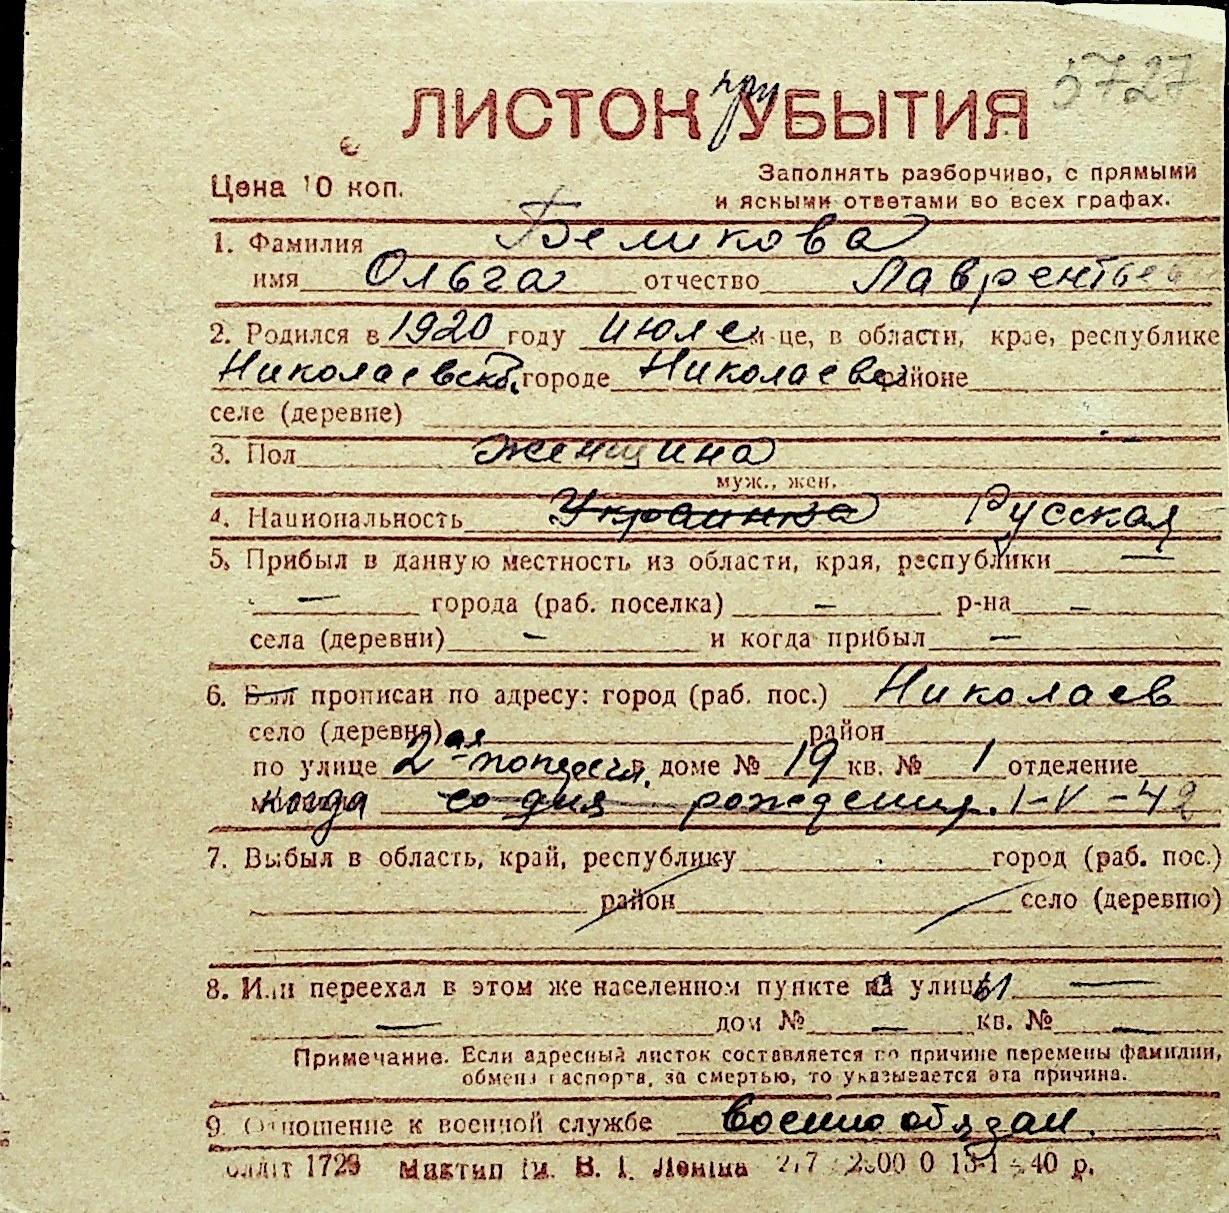 5727
ЛИСТОК при УБЫТИЯ
Цена 10 коп.
Заполнять разборчиво, с прямыми
и ясными ответами во всех графах.
1. Фамилия Беликова
имя Ольга отчество Лаврентьев
2. Родился в 1920 году июле м-це, в области, крае, республике
Николаевской, городе Николаеве районе
селе (деревне)
3. Пол женщина
муж., жен.
4. Национальность Украинка Русская
5. Прибыл в данную местность из области, края, республики —
— города (раб. поселка) — р-на —
села (деревни) — и когда прибыл —
6. Был прописан по адресу: город (раб. пос.) Николаев
село (деревня) район
по улице 2ая в доме № 19 кв. № 1 отделение
когда со дня рождения. 1-V-42
7. Выбыл в область, край, республику город (раб. пос.)
район село (деревню)
8. Или переехал в этом же населенном пункте с улицы —
— дом № — кв. № —
Примечание. Если адресный листок составляется по причине перемены фамилии,
обмена паспорта, за смертью, то указывается эта причина.
9. Отношение к военной службе военнообязан.
1723 Миктип В. І. Леніна 40 р.